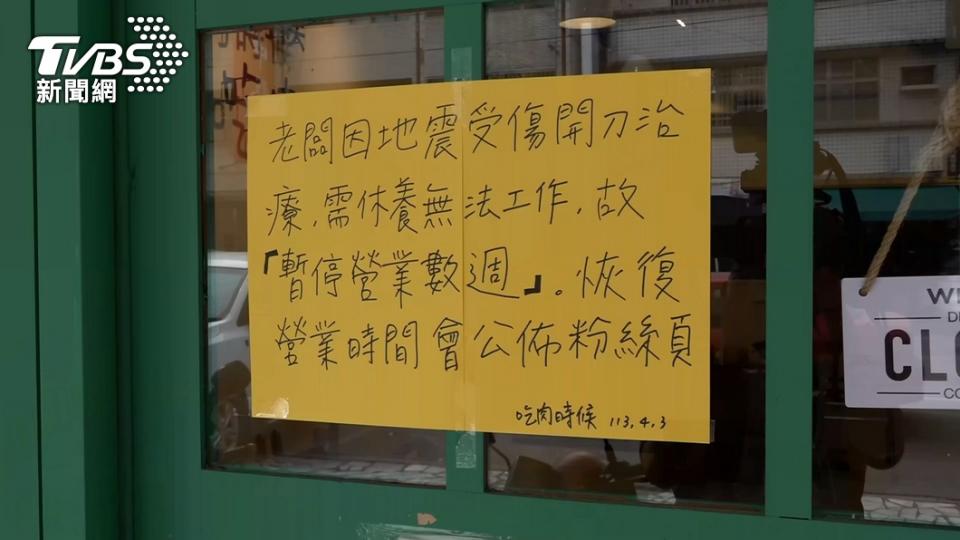 TVBS
新聞網
老闆因地震受傷開刀治
療,需休養無法工作,故
「暫停營業數週」。恢復
營業時間會公佈粉絲頁
吃肉時候 113.4.3